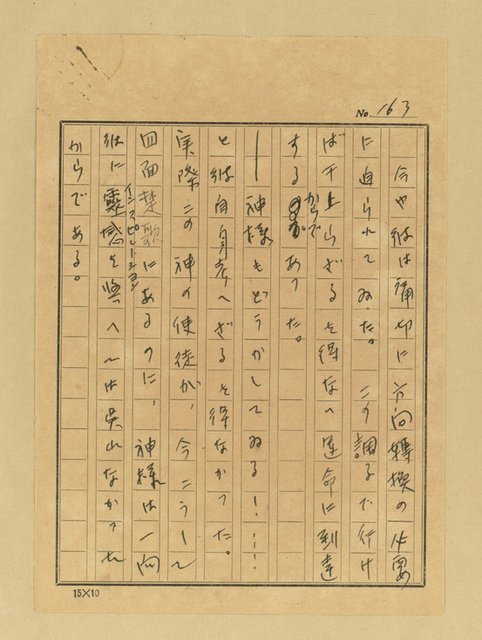 No. 163
今や彼は痛切に方向轉換の必要
に迫られてゐた。この調子で行け
ば干上らざるを得ない運命に到達
するからであつた。
――神様もどうかしてゐる！‥‥
と彼自身考へざるを得なかつた。
実際この神の使徒が、今こうして
四面楚歌にあるのに、神様は一向
彼に靈感を與へては呉れなかつた
インスピレーション
からである。
15×10